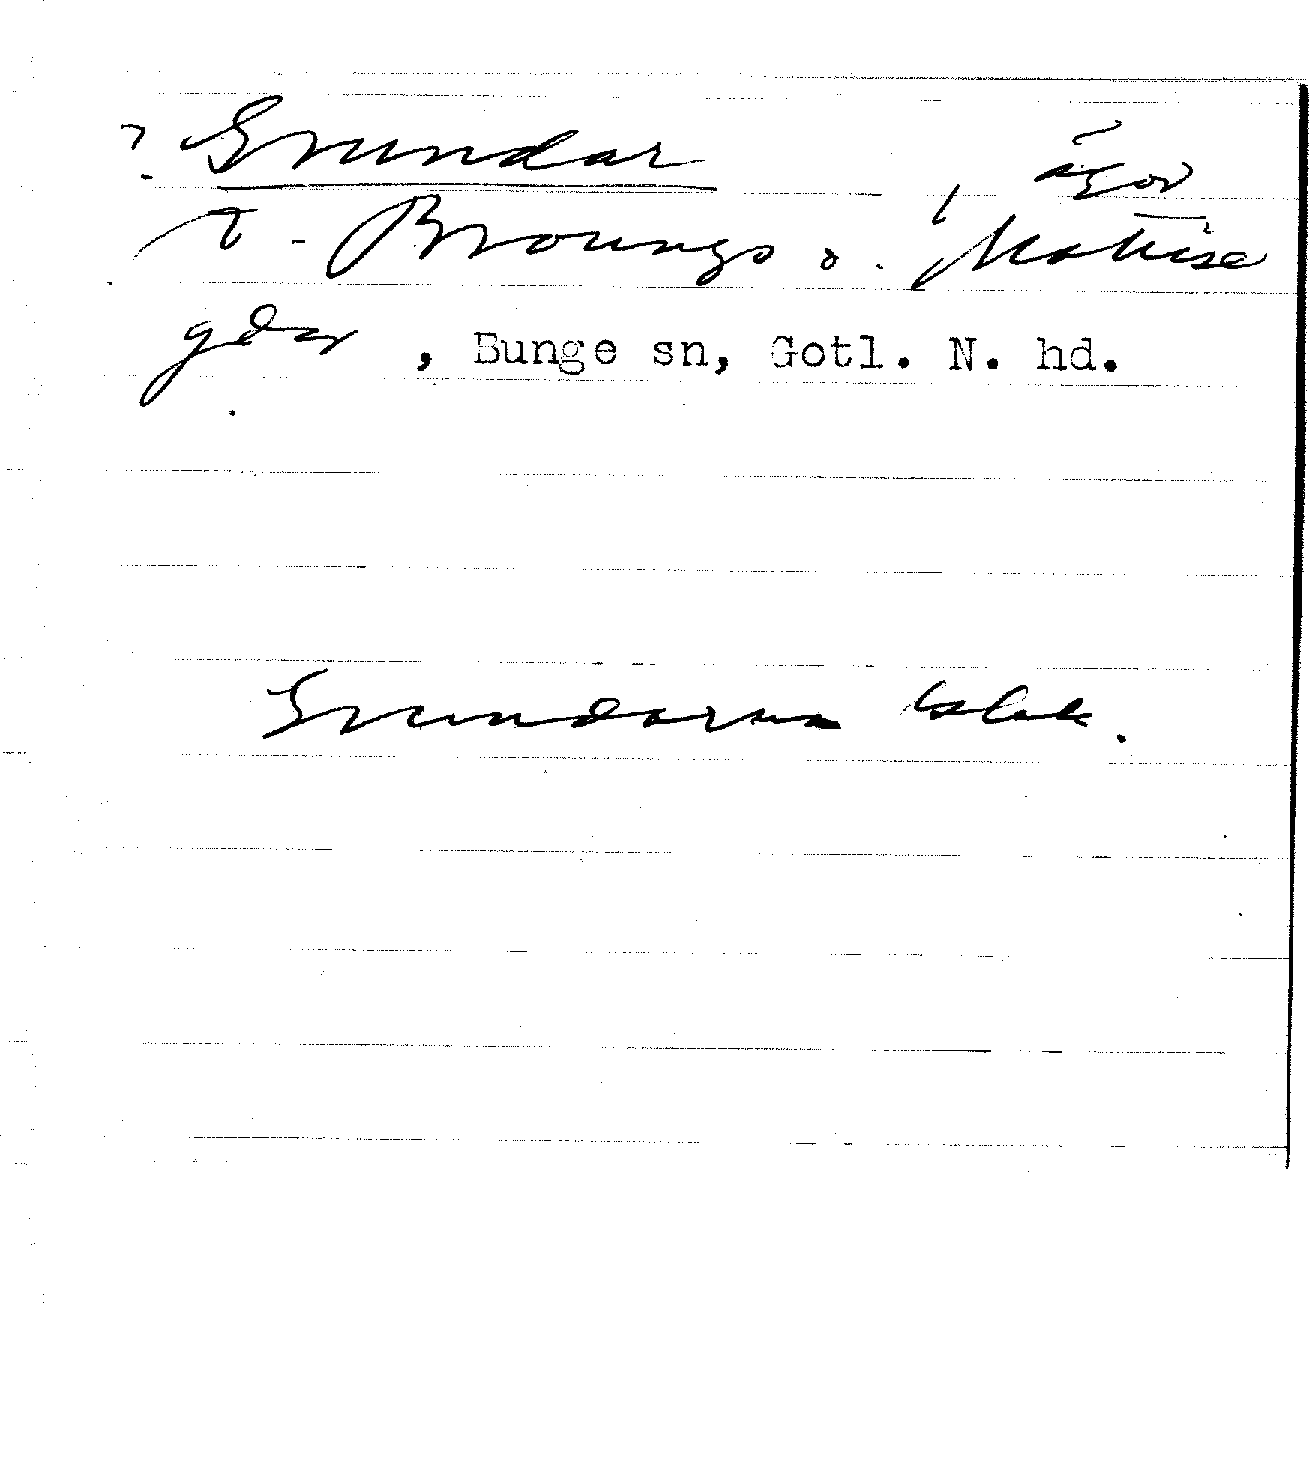 ? Grundar, ägor
t. Broungs o. Mattise
gdar, Bunge sn, Gotl. N. hd.
Grundarna